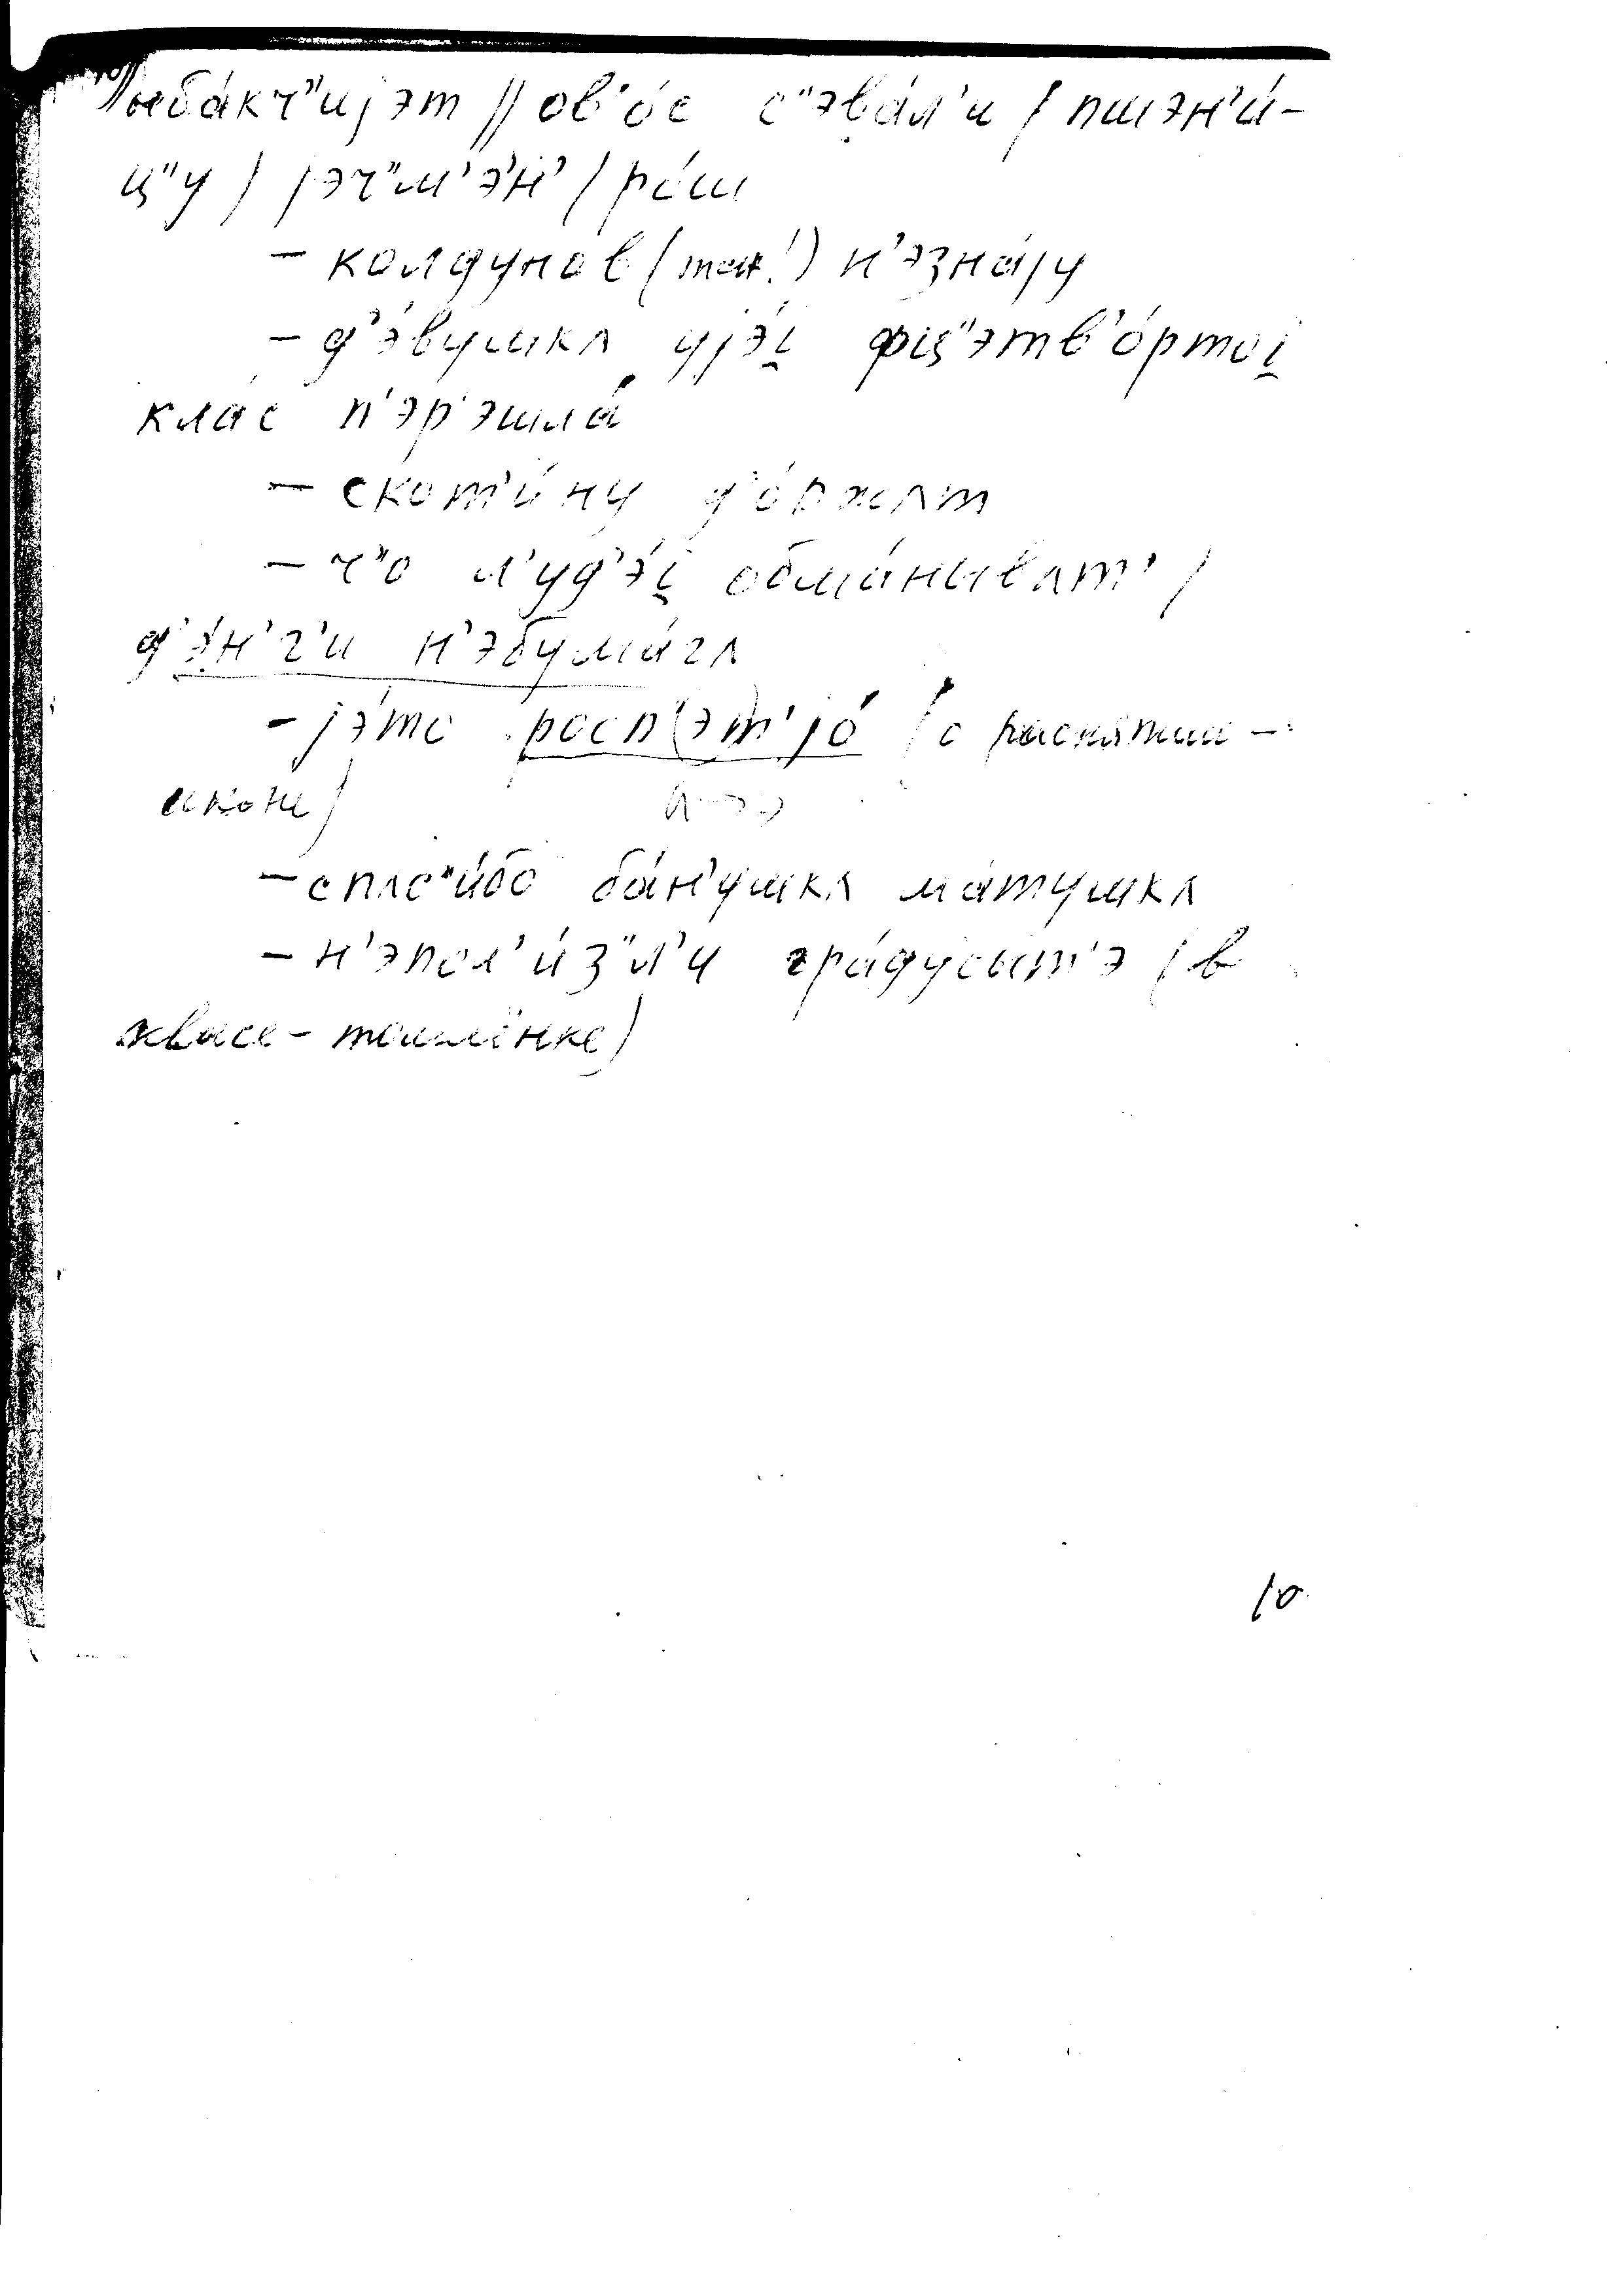 //нба́кч"иjэт // ов'о́с с"эва́л'и / пшэн'и́-
ц"у / jэч"м'э́н' / ро́ш
– колдуно́в (так!) н'эзна́jу
– д'э́вушкʌ уjэ́i̯ фц"этв'о́ртоi̯
кла́с п'эр'эшла́
– скот'и́ну д'о́ржʌт
– ч"о л'уд'э́i̯ обма́нывʌт' /
д'э́н'г'и н'эбума́гʌ
– jэ́то росп'(э)т'jо́ (о распятии –
иконе)
– спʌс"и́бо ба́н'ушкʌ ма́тушкʌ
– н'эпол'и́з"л'и гра́дусыт'э (в
квасе-томлёнке)
10